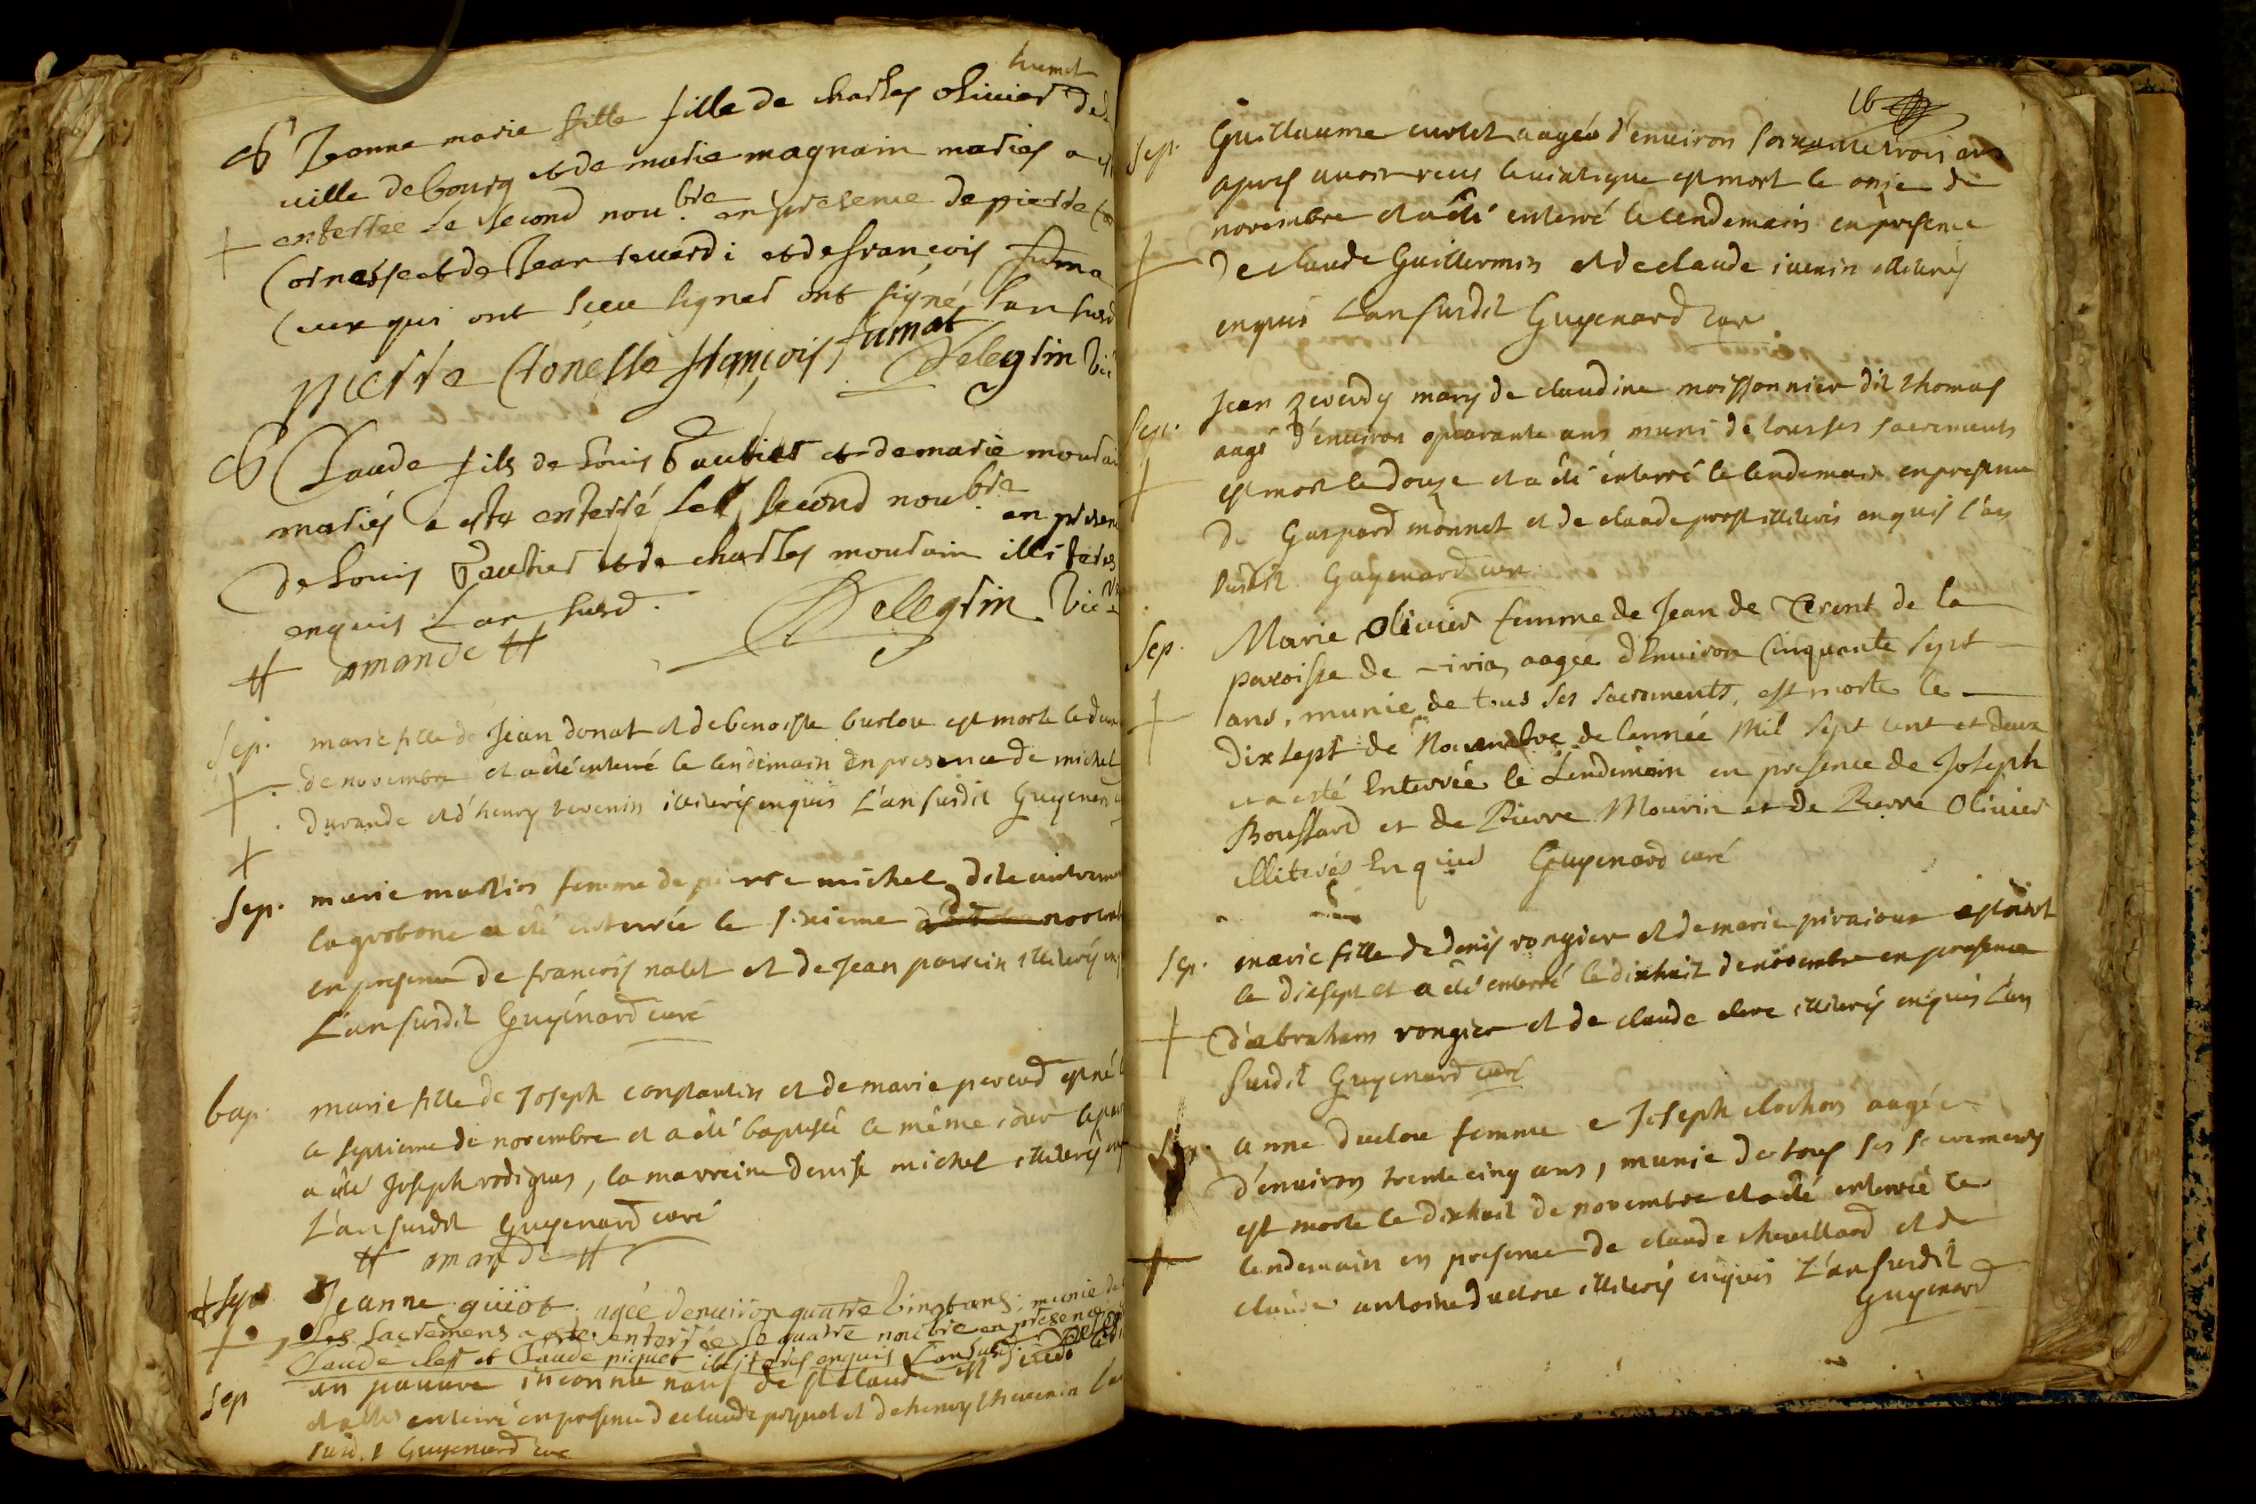 humet
Jeanne marie fille fille de charles olivier de
ville de bourg et de marie magnain mariés a
enterree le second nou.bre en presence de pierre
Cornesse et de Jean reverdi et de françois fuma
ceux qui ont sceu signer ont signé lan susd
pierre Cronesse françois fumat Pelegrin vic
Claude fils de Louis Gautier et de marie mourai
mariés a esté enterré le second nou.bre en presen
de Louis Gautier et de charles mourain illiteres
enquis Lan susd. Pelegrin vic
amande
Sep. marie fille de Jean donat et de benoiste burlou est morte le
de novembre et a été enterré le lendemain en presence de michel
durande et d'henry tevenin illiterés enquis L'an susdit Guyenar
Sep. marie martin femme de pierre michel dite
la grobone a été enterrée le sixieme de novemb
en presence de francois nalet et de Jean parrein illiterés en
L'an susdit Guyenard curé
bap. marie fille de Joseph constantin et de marie perrud est né
le septieme de novembre et a été baptisée le même jour le par
a été Joseph rodiguas, la marreine denise michel illiterés en
L'an susdit Guyenard curé
amande
Sep. Jeanne guiot agée denuiron quatre vingt ans, munie de
Les sacremens a esté enterrée Le quatre nou.bre en presence
Claude clerc et Claude piquet illiterés enquis Lan susd
Sep un pauvre inconnu natif de st claude est
et a été enterré en presence de claude piquet et de henry thevenin
susd.t Guyenard curé
16
Sep. Guillaume curlet aagéé d'environ soixante trois ans
apres avoir receu le viatique est mort le onze de
novembre et a été enterré le lendemain en presence
de claude Guillermin et de claude iuenin illiterés
enquis L'an susdit Guyenard cure
Sep. Jean reverdy mary de claudine moissonnier dit thomas
aagé d'environ quarante ans muni de tous ses sacrements
est mort le douze et a été enterré le lendemain en presence
de Gaspard monnet et de claude prost illiterés enquis l'an
susdit Guyenard cure
Sep. Marie Olivier femme de Jean de Cerent de la
paroisse de viria, aagée d'Environ Cinquante Sept
ans, munie de tous ses sacrements, est morte le
dix sept de Novembre de l'année Mil Sept Cent et deux
et a esté Enterrée le Lendemain en presence de Joseph
Boussard et de Pierre Mourin et de Pierre Olivier
illiterés Enquis Guyenard curé
Sep. marie fille de denis rongier et de marie est morte
le dixsept et a été enterré le dixhuit de novembre en presence
d'abraham rongier et de claude clerc illiterés enquis L'an
susdit Guyenard curé
Sep. anne duclou femme Joseph clochon aagée
d'environ trente cinq ans, munie de tous ses sacrements
est morte le dixhuit de novembre et a été enterrée le
lendemain en presence de claude chevillard et de
claude antoine duclou illiterés enquis L'an susdit
Guyenard